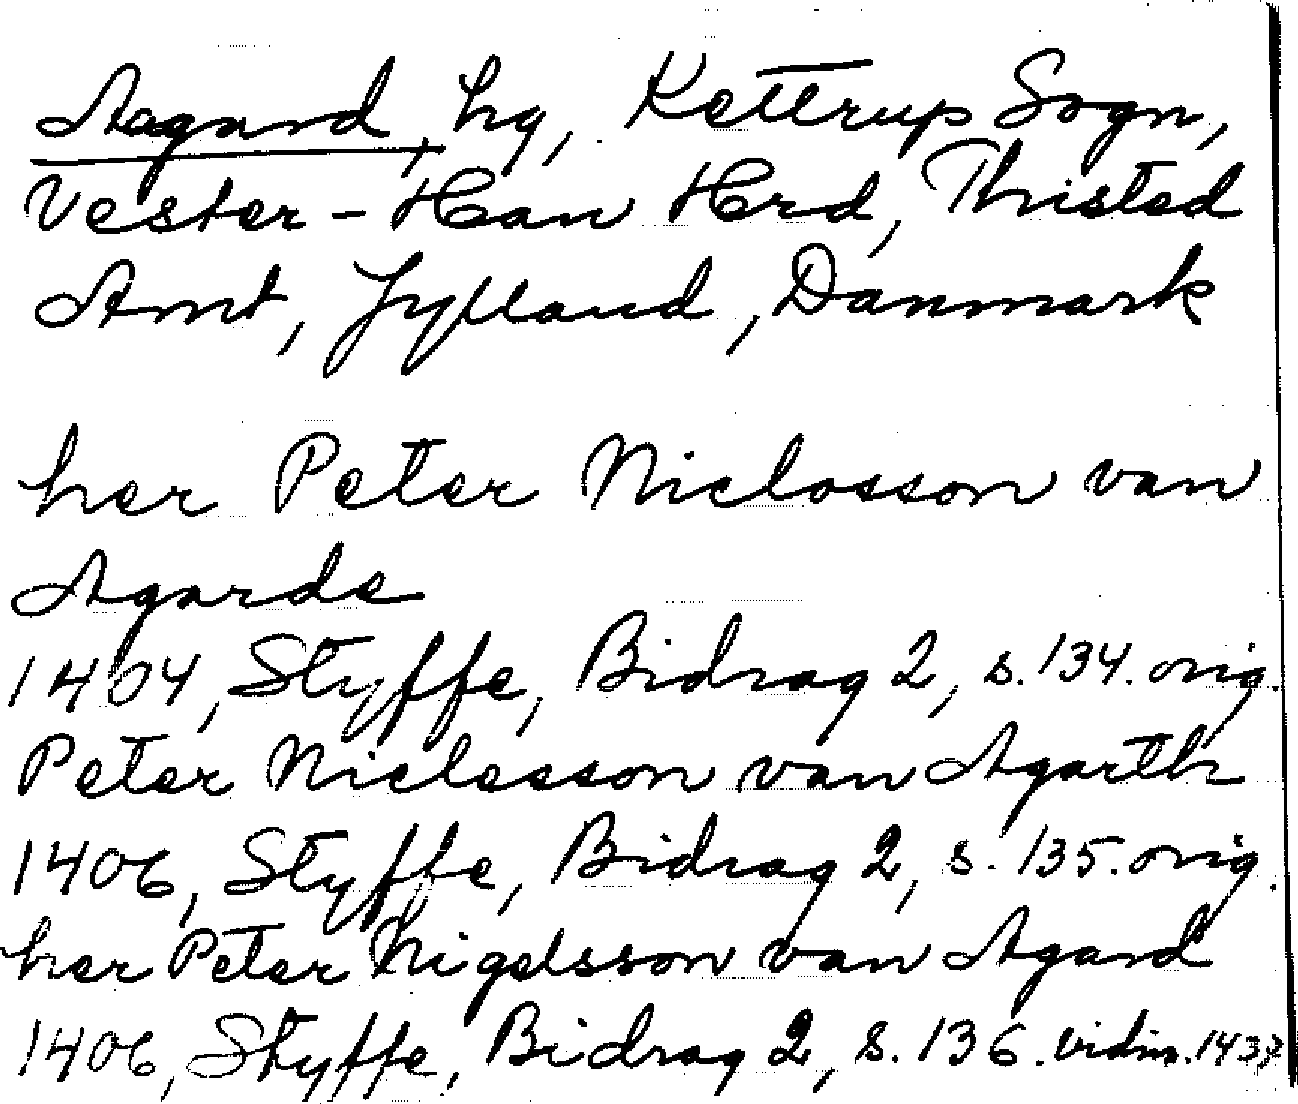 Aagard, hg, Kettrup Sogn,
Vester-Han Hrd, Thisted
Amt, Jylland, Danmark
her Peter Niclosson van
Agarde
1404, Styffe, Bidrag 2, s. 134. orig.
Peter Niclesson van Agarth
1406, Styffe, Bidrag 2, s. 135. orig.
her Peter Nigelsson van Agard
1406, Styffe, Bidrag 2, s. 136. vidim. 1437